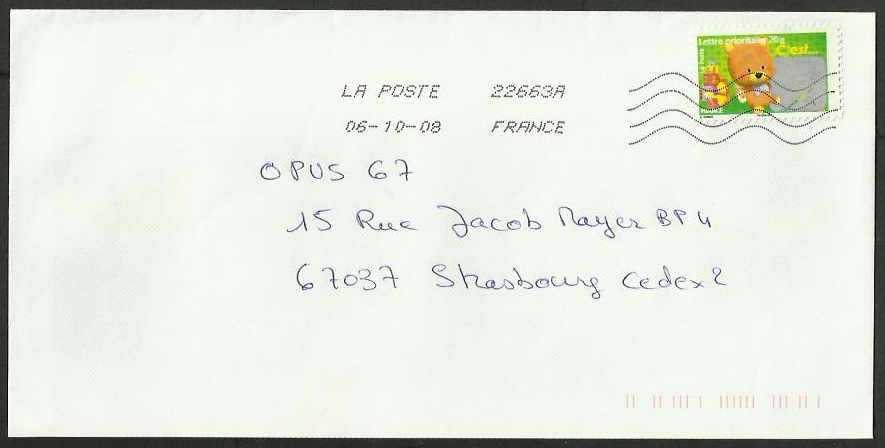 Lettre prioritaire 20g
C'est...
La Poste
LA POSTE 22663A
06-10-08 FRANCE
OPUS 67
15 Rue Jacob Mayer BP 4
67037 Strasbourg Cedex 2